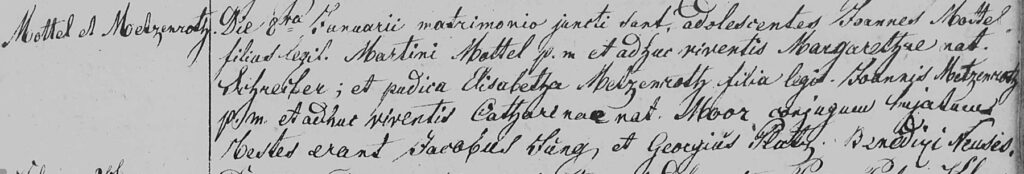 Mottel et Metzenroth. Die 8va Januarii matrimonio juncti sunt, adolescentes Joannes Mottel
filius legit. Martini Mottel p. m et adhuc viventis Margarethae nat.
Schreifer; et pudica Elisabetha Metzenroth filia legit. Joannis Metzenroth
p. m et adhuc viventis Catharinae nat. Moor conjugum hujatum
testes erant Jacobus Jung, et Georgius Platz. Benedixi Neuses.